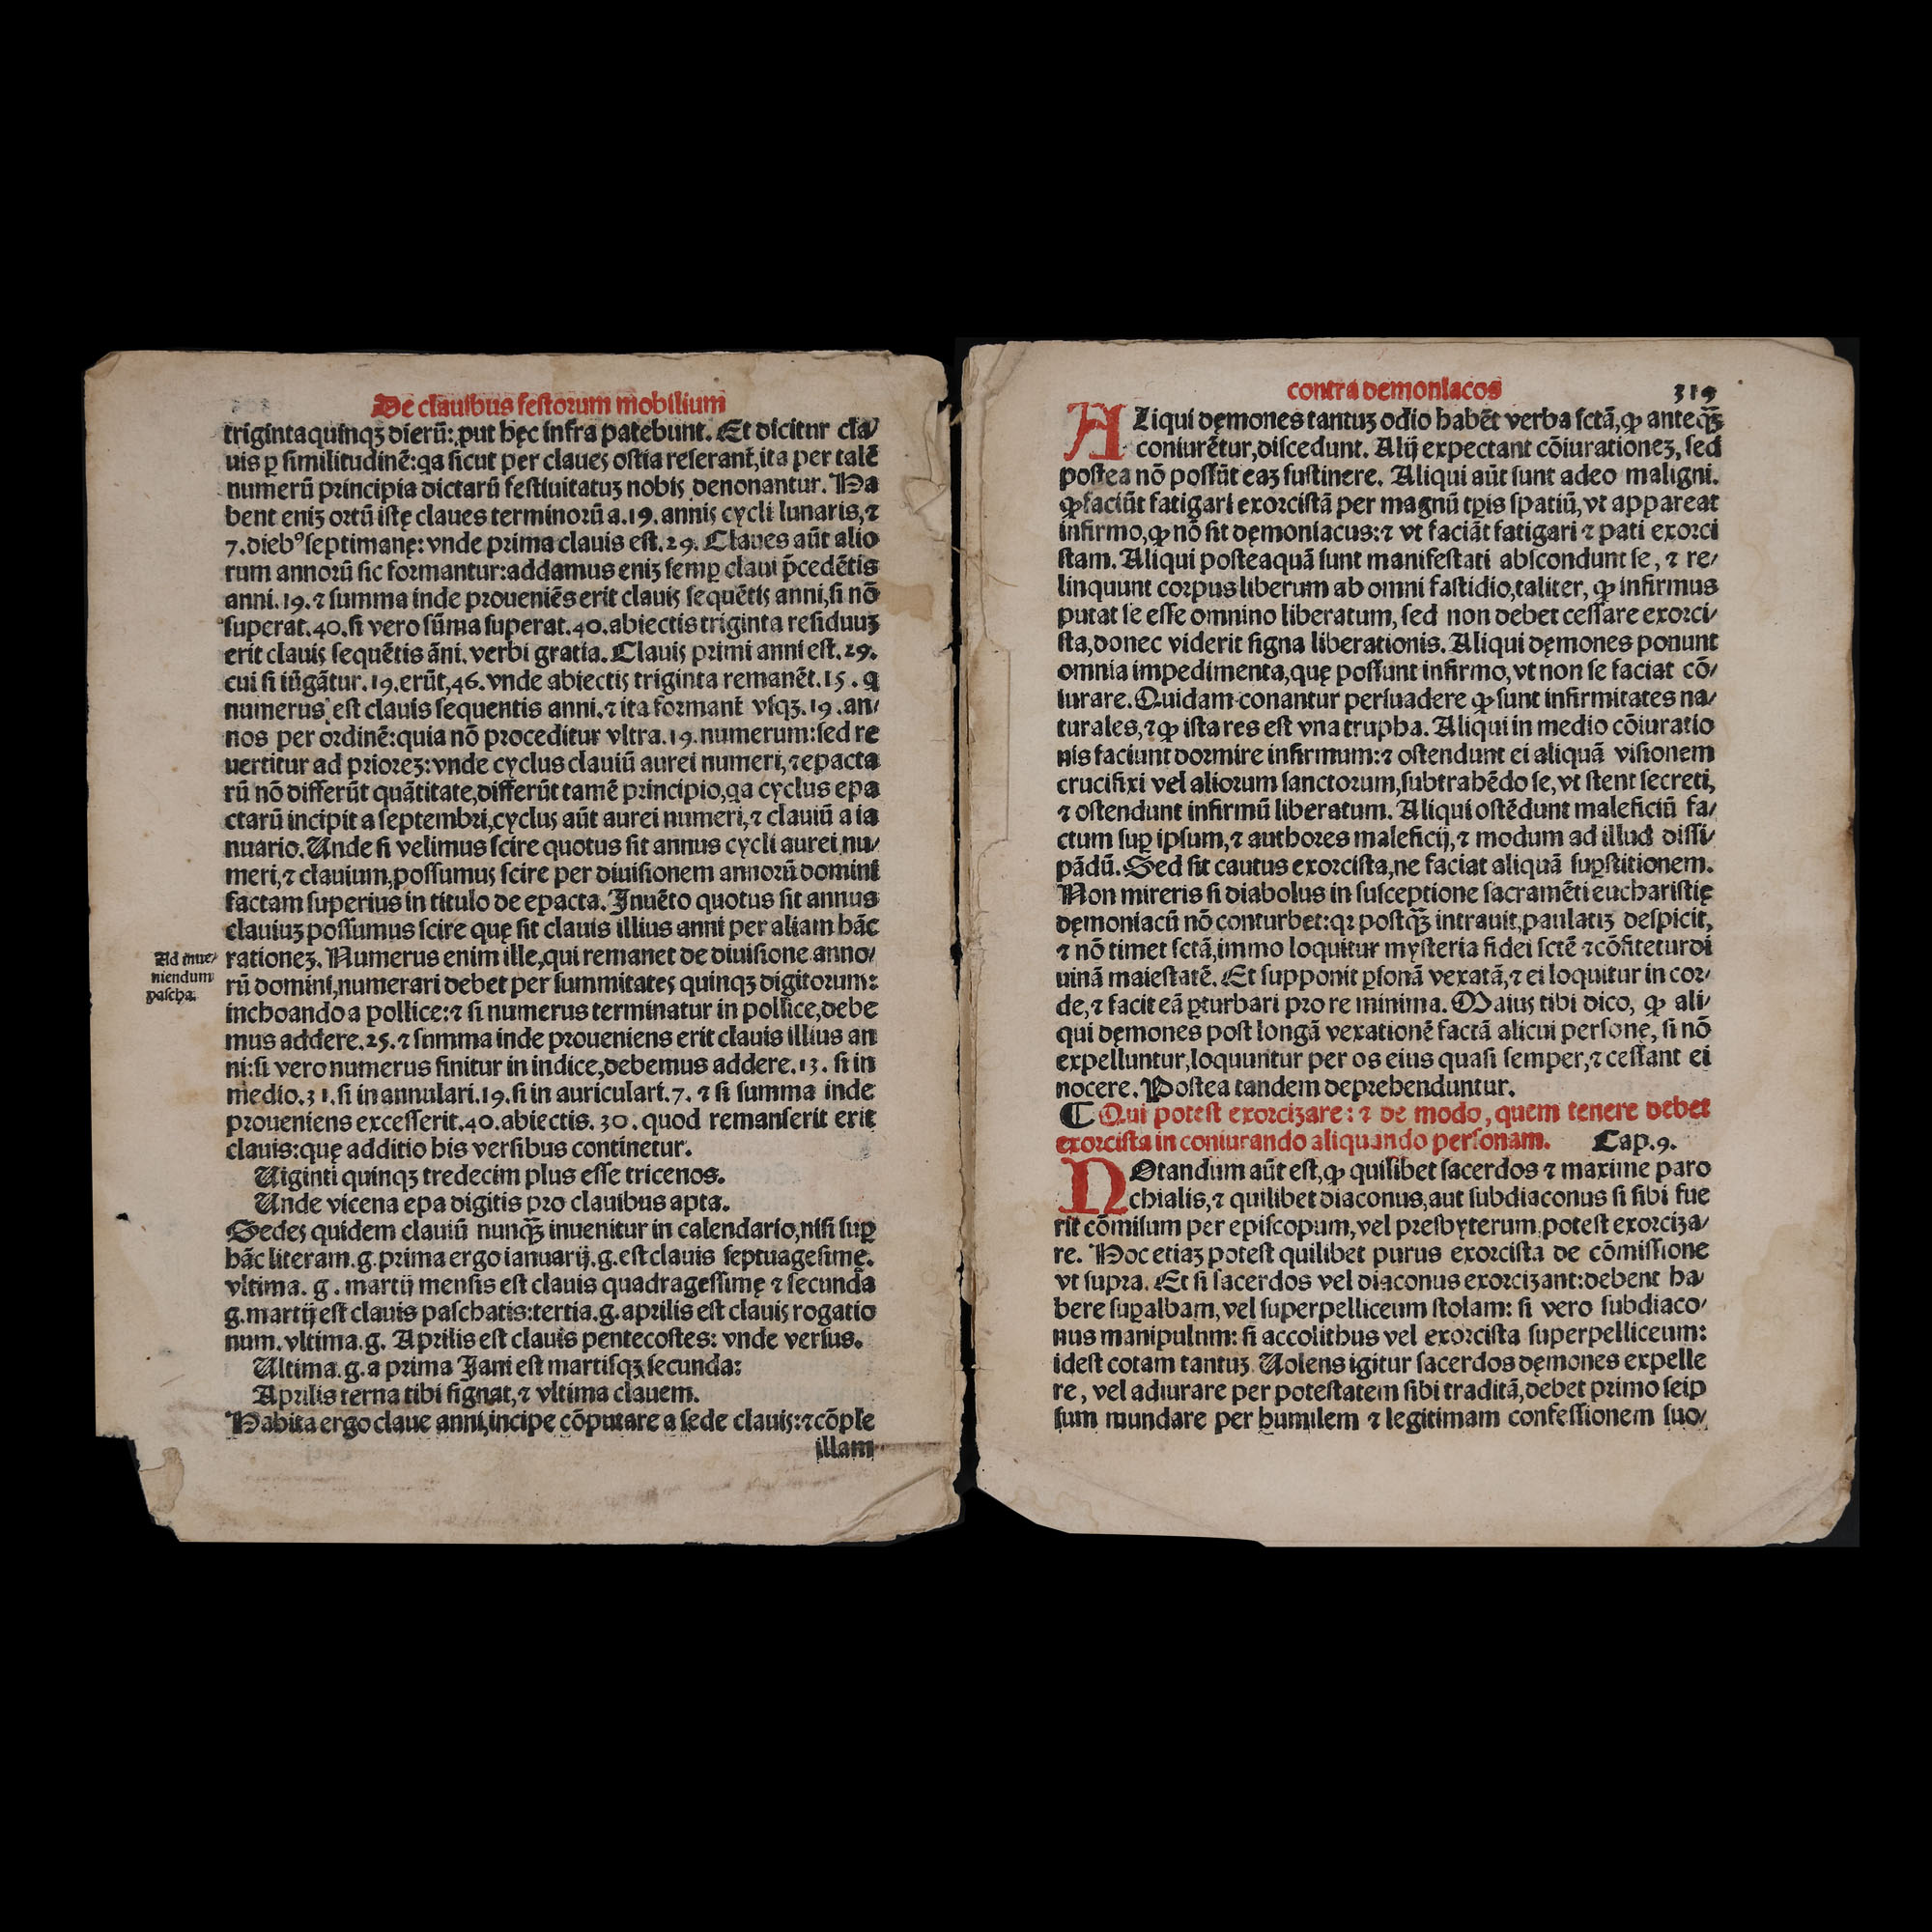 De clauibus festorum mobilium
trigintaquinqꝫ dierũ: ꝓut hęc infra patebunt. Et dicitnr cla/
uis ꝑ similitudinẽ: qa sicut per claues ostia reserant̃, ita per talẽ
numerũ principia dictarũ festiuitatuꝫ nobis denonantur. Ha
bent eniꝫ ortũ istę claues terminorũ a .19. annis cycli lunaris, ⁊
7. diebꝰ septimanę: vnde prima clauis est .29. Claues aũt alio
rum annorũ sic formantur: addamus eniꝫ semꝑ claui p̃cedẽtis
anni .19. ⁊ summa inde proueniẽs erit clauis sequẽtis anni, si nõ
superat .40. si vero sũma superat .40. abiectis triginta residuuꝫ
erit clauis sequẽtis ãni. verbi gratia. Clauis primi anni est .29.
cui si iũgãtur .19. erũt, 46. vnde abiectis triginta remanẽt .15. q
numerus est clauis sequentis anni. ⁊ ita formant̃ vsqꝫ .19. an/
nos per ordinẽ: quia nõ proceditur vltra .19. numerum: sed re
uertitur ad priores: vnde cyclus clauiũ aurei numeri, ⁊ epacta
rũ nõ differũt quãtitate, differũt tamẽ principio, qa cyclus epa
ctarũ incipit a septembri, cyclus aũt aurei numeri, ⁊ clauiũ a ia
nuario. Unde si velimus scire quotus sit annus cycli aurei nu/
meri, ⁊ clauium, possumus scire per diuisionem annorũ domini
factam superius in titulo de epacta. Inuẽto quotus sit annus
clauiuꝫ possumus scire quę sit clauis illius anni per aliam hãc
rationeꝫ. Numerus enim ille, qui remanet de diuisione anno/
Ad inue/
niendum
pascha.
rũ domini, numerari debet per summitates quinqꝫ digitorum:
inchoando a pollice: ⁊ si numerus terminatur in pollice, debe
mus addere .25. ⁊ snmma inde proueniens erit clauis illius an
ni: si vero numerus finitur in indice, debemus addere .13. si in
medio .31. si in annulari .19. si in auriculari .7. ⁊ si summa inde
proueniens excesserit .40. abiectis .30. quod remanserit erit
clauis: quę additio his versibus continetur.
Uiginti quinqꝫ tredecim plus esse tricenos.
Unde vicena epa digitis pro clauibus apta.
Sedes quidem clauiũ nunq̃ꝫ inuenitur in calendario, nisi suꝑ
hãc literam .g. prima ergo ianuarij .g. est clauis septuagesimę.
vltima. g. martij mensis est clauis quadragessimę ⁊ secunda
g. martij est clauis paschatis: tertia .g. aprilis est clauis rogatio
num. vltima .g. Aprilis est clauis pentecostes: vnde versus.
Ultima .g. a prima Jani est martisqꝫ secunda:
Aprilis terna tibi signat, ⁊ vltima clauem.
Habita ergo claue anni, incipe cõputare a sede clauis: ⁊ cõple
illam
contra demoniacos 319
ALiqui dęmones tantuꝫ odio habẽt verba sctã, ꝙ anteq̃ꝫ
coniurẽtur, discedunt. Alij expectant cõiurationeꝫ, sed
postea nõ possũt eaꝫ sustinere. Aliqui aũt sunt adeo maligni.
ꝙ faciũt fatigari exorcistã per magnũ tp̃is spatiũ, vt appareat
infirmo, ꝙ nõ sit dęmoniacus: ⁊ vt faciãt fatigari ⁊ pati exorci
stam. Aliqui posteaquã sunt manifestati abscondunt se, ⁊ re/
linquunt corpus liberum ab omni fastidio, taliter, ꝙ infirmus
putat se esse omnino liberatum, sed non debet cessare exorci/
sta, donec viderit signa liberationis. Aliqui dęmones ponunt
omnia impedimenta, quę possunt infirmo, vt non se faciat cõ/
iurare. Quidam conantur persuadere ꝙ sunt infirmitates na/
turales, ⁊ ꝙ ista res est vna trupha. Aliqui in medio cõiuratio
nis faciunt dormire infirmum: ⁊ ostendunt ei aliquã visionem
crucifixi vel aliorum sanctorum, subtrahẽdo se, vt stent secreti,
⁊ ostendunt infirmũ liberatum. Aliqui ostẽdunt maleficiũ fa/
ctum suꝑ ipsum, ⁊ authores maleficij, ⁊ modum ad illud dissi/
pãdũ. Sed sit cautus exorcista, ne faciat aliquã suꝑstitionem.
Non mireris si diabolus in susceptione sacramẽti eucharistię
dęmoniacũ nõ conturbet: qꝛ postq̃ꝫ intrauit, paulatiꝫ despicit,
⁊ nõ timet sctã, immo loquitur mysteria fidei sctẽ ⁊ cõfitetur di
uinã maiestatẽ. Et supponit ꝑsonã vexatã, ⁊ ei loquitur in cor/
de, ⁊ facit eã ꝑturbari pro re minima. Maius tibi dico, ꝙ ali/
qui dęmones post longã vexationẽ factã alicui personę, si nõ
expelluntur, loquuntur per os eius quasi semper, ⁊ cessant ei
nocere. Postea tandem deprehenduntur.
¶ Qui potest exorcizare: ⁊ de modo, quem tenere debet
exorcista in coniurando aliquando personam. Cap. 9.
NOtandum aũt est, ꝙ quilibet sacerdos ⁊ maxime paro
chialis, ⁊ quilibet diaconus, aut subdiaconus si sibi fue
rit cõmisum per episcopum, vel presbyterum, potest exorciza/
re. Hoc etiaꝫ potest quilibet purus exorcista de cõmissione
vt supra. Et si sacerdos vel diaconus exorcizant: debent ha/
bere suꝑalbam, vel superpelliceum stolam: si vero subdiaco/
nus manipulnm: si accolithus vel exorcista superpelliceum:
idest cotam tantuꝫ. Uolens igitur sacerdos dęmones expelle
re, vel adiurare per potestatem sibi traditã, debet primo seip
sum mundare per humilem ⁊ legitimam confessionem suo/